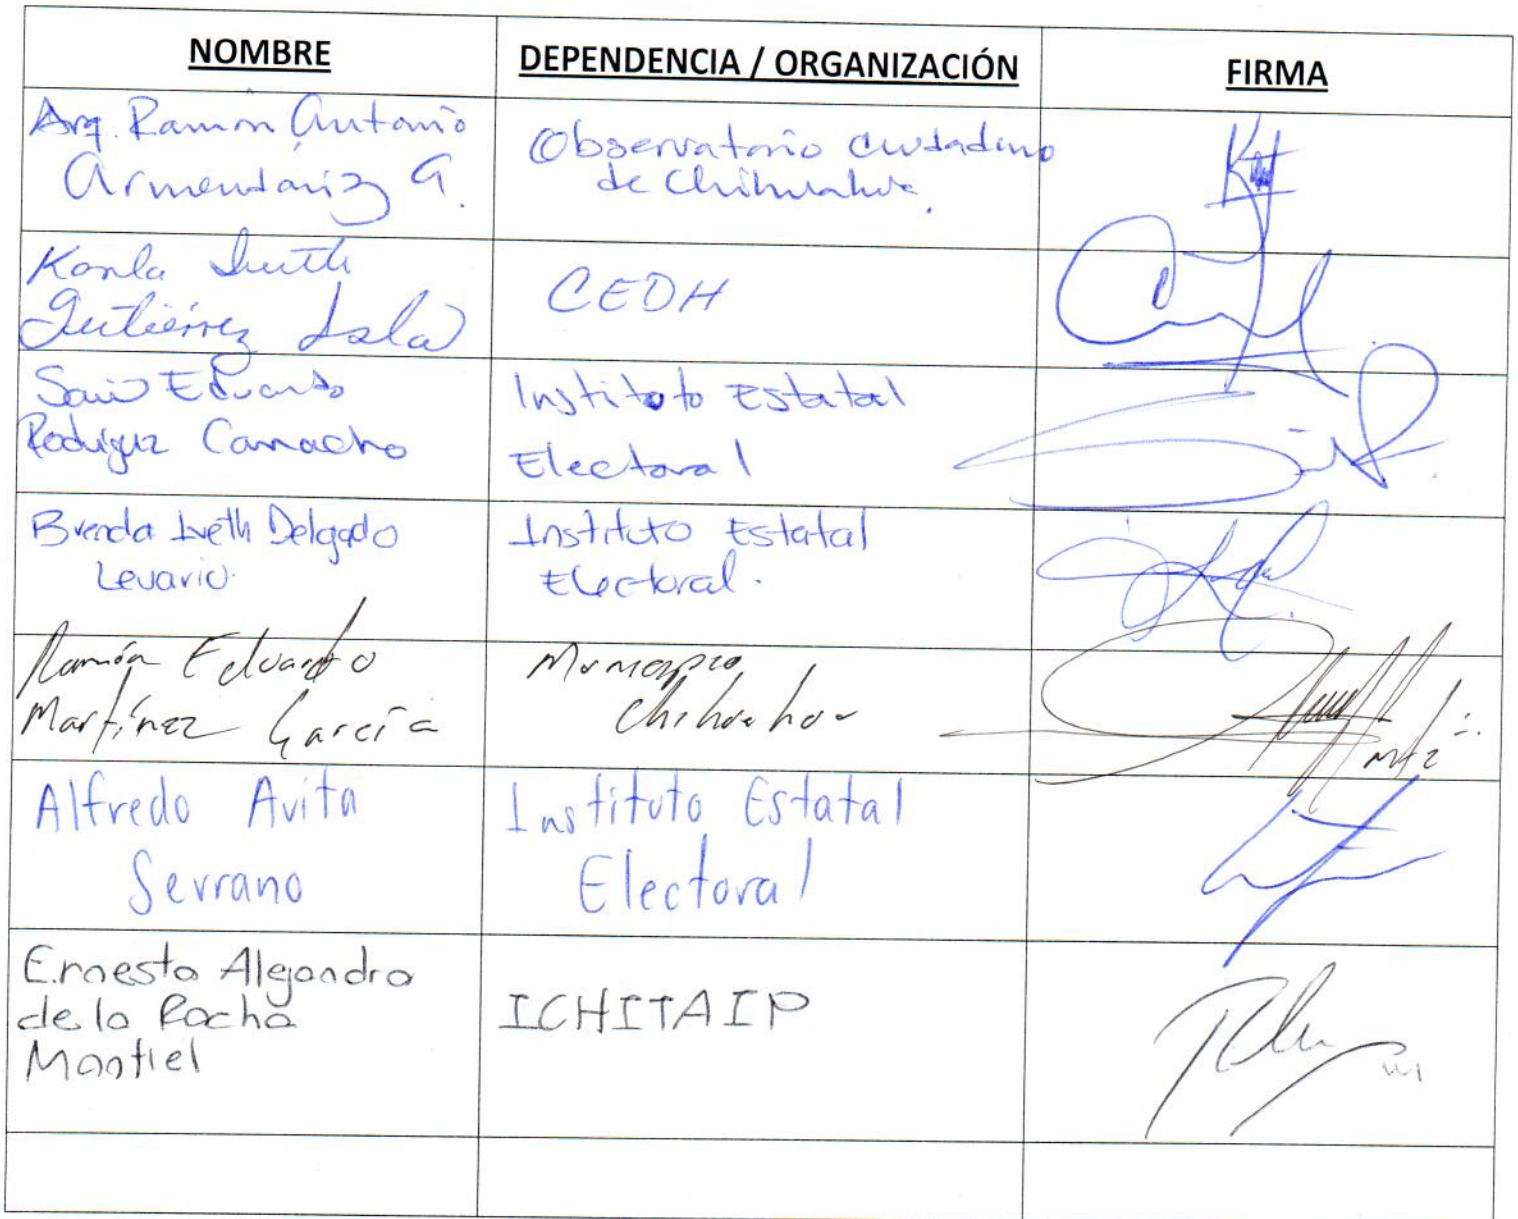 NOMBRE
DEPENDENCIA / ORGANIZACIÓN
FIRMA
Arq. Ramón Antonio
Armendáriz G.
Observatorio Ciudadano
de Chihuahua.
Karla Iveth
Gutiérrez Isla
CEDH
Eduardo
Rodriguez Camacho
Instituto Estatal
Electoral
Brenda Iveth Delgado
Levario.
Instituto Estatal
Electoral.
Ramón Eduardo
Martínez García
Municipio
Chihuahua
Mtz
Alfredo Avita
Serrano
Instituto Estatal
Electoral
Ernesto Alejandro
de la Rocha
Montiel
ICHITAIP